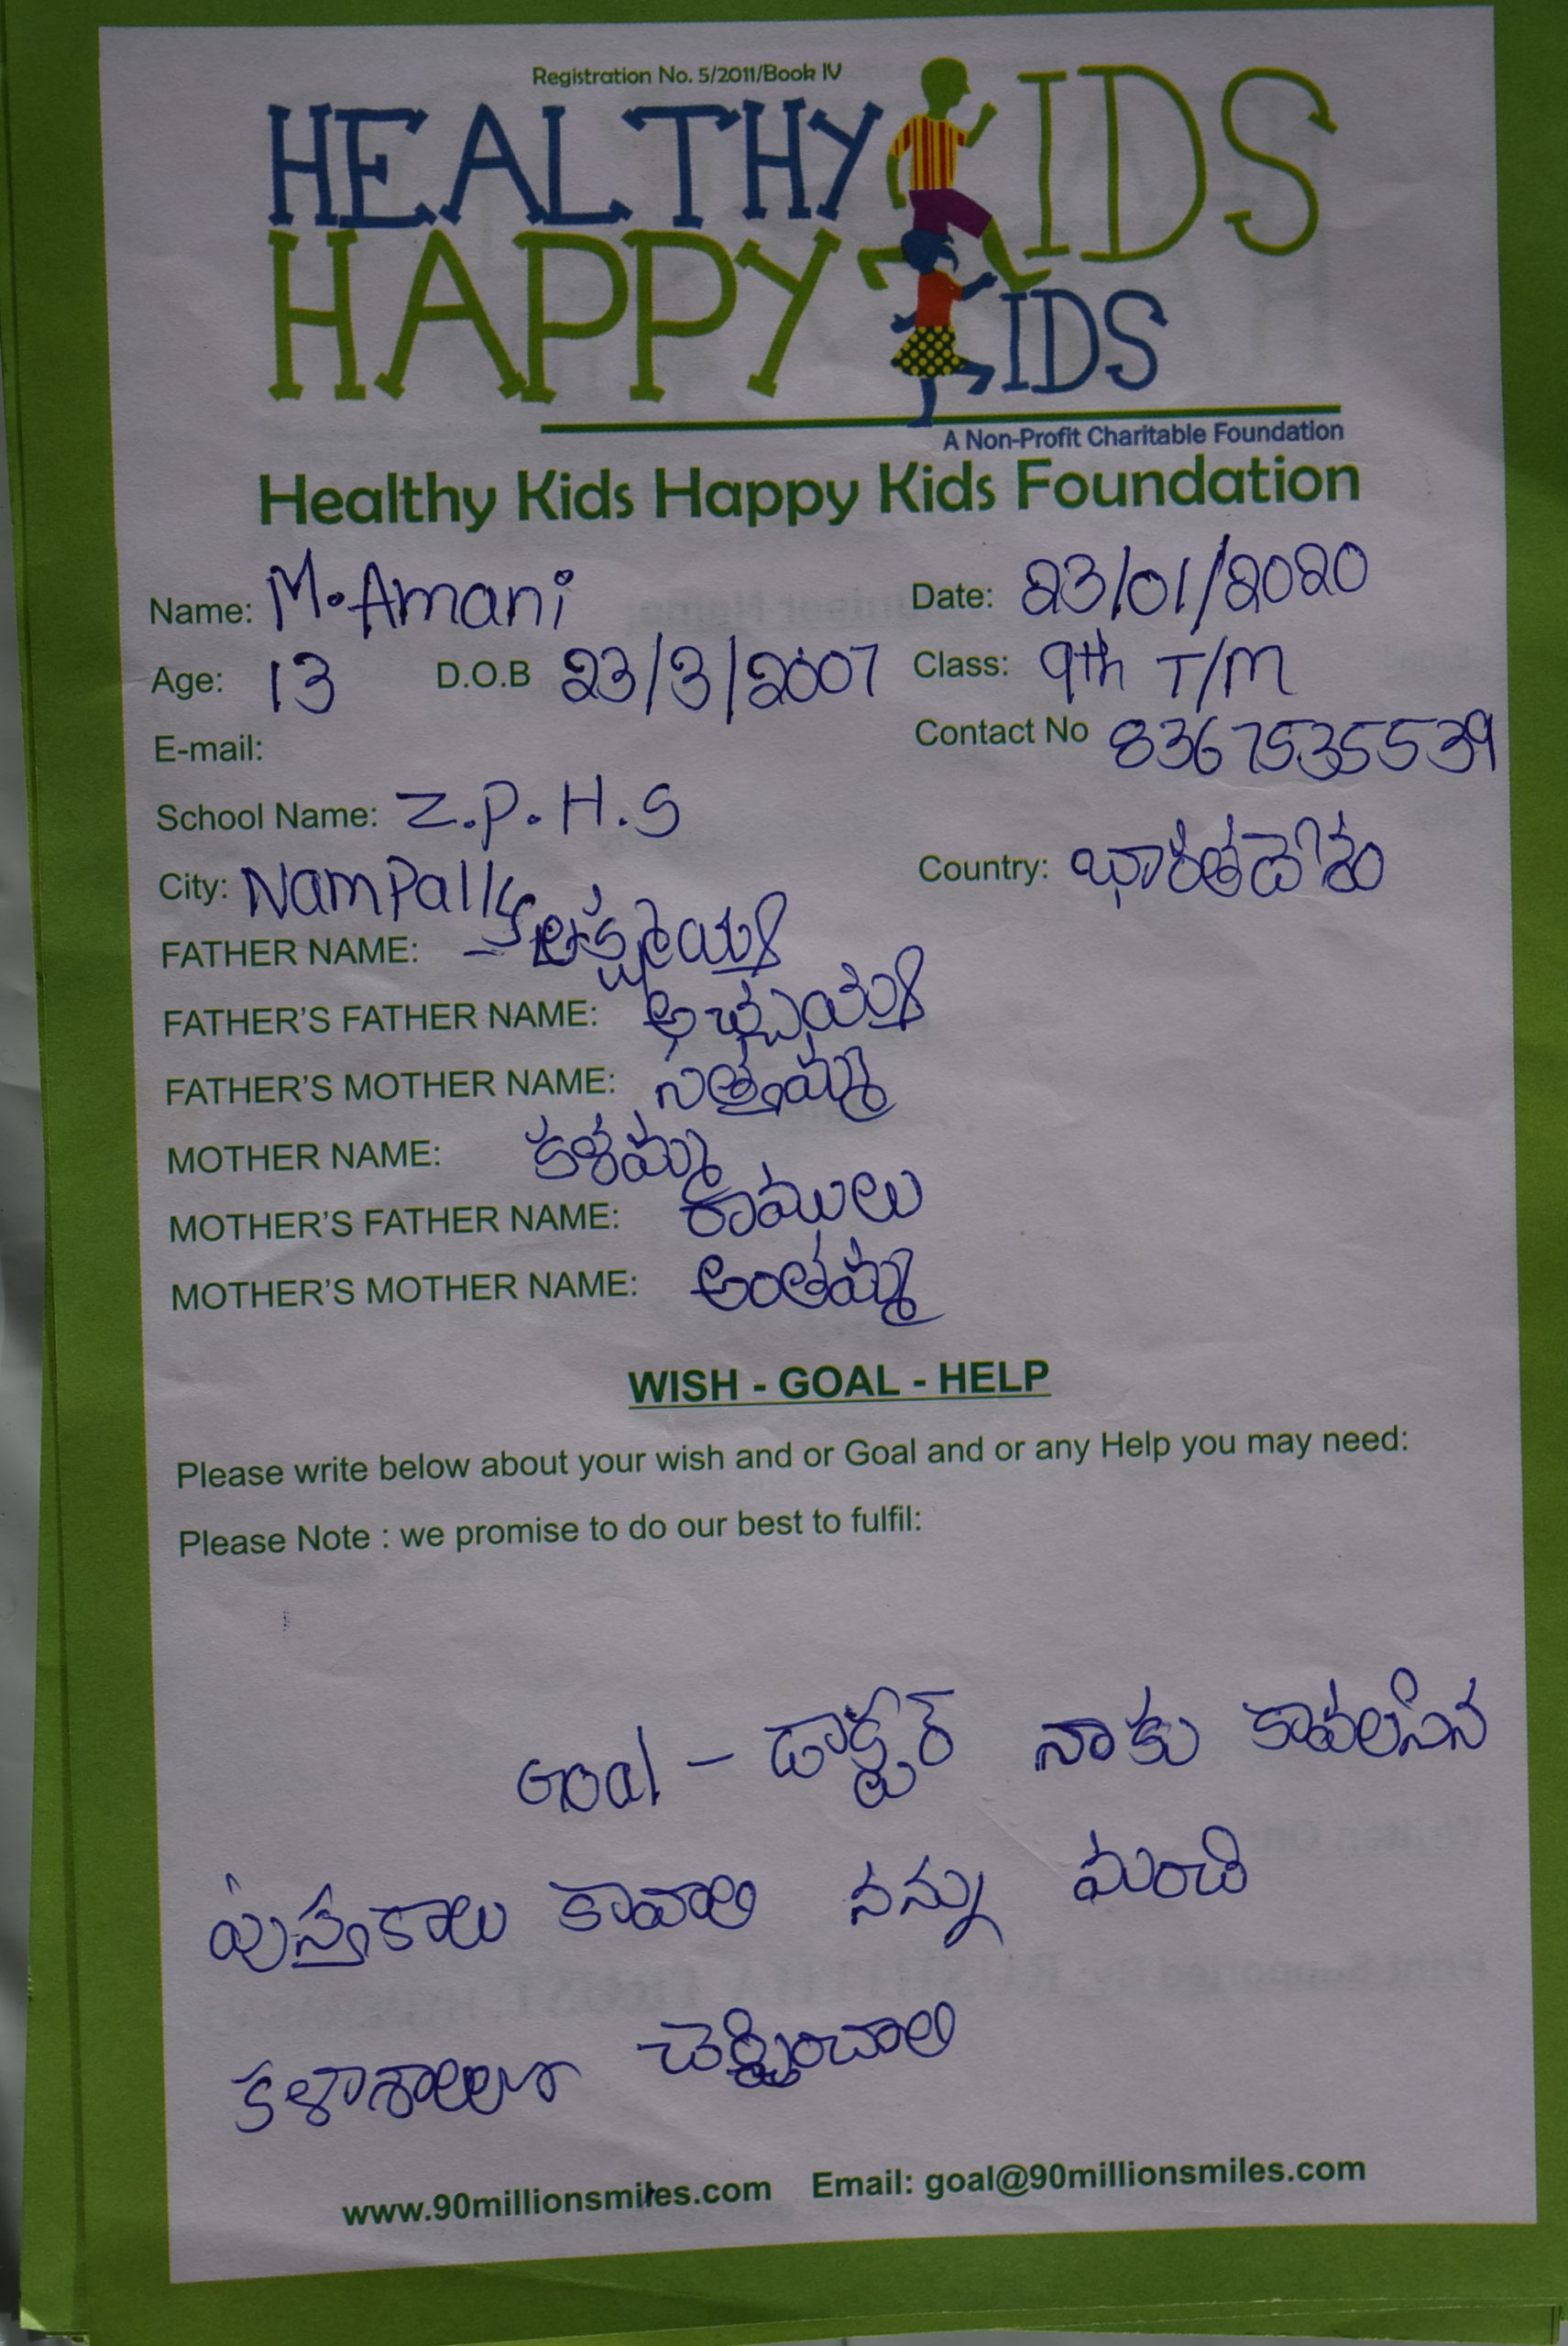 Registration No. 5/2011/Book IV
HEALTHY KIDS
HAPPY KIDS
A Non-Profit Charitable Foundation
Healthy Kids Happy Kids Foundation
Name: M. Amani Date: 23/01/2020
Age: 13 D.O.B 23/3/2007 Class: 9th T/M
E-mail: Contact No 8367535539
School Name: Z.P.H.S
City: Nampally Country: భారతదేశం
FATHER NAME:
FATHER'S FATHER NAME: అచ్చయ్య
FATHER'S MOTHER NAME: సత్తమ్మ
MOTHER NAME: కళమ్మ
MOTHER'S FATHER NAME: రాములు
MOTHER'S MOTHER NAME: అంతమ్మ
WISH - GOAL - HELP
Please write below about your wish and or Goal and or any Help you may need:
Please Note : we promise to do our best to fulfil:
Goal - డాక్టర్ నాకు కావలసిన
పుస్తకాలు కావాలి నన్ను మంచి
కళాశాలలో చేర్పించాలి
www.90millionsmiles.com Email: goal@90millionsmiles.com